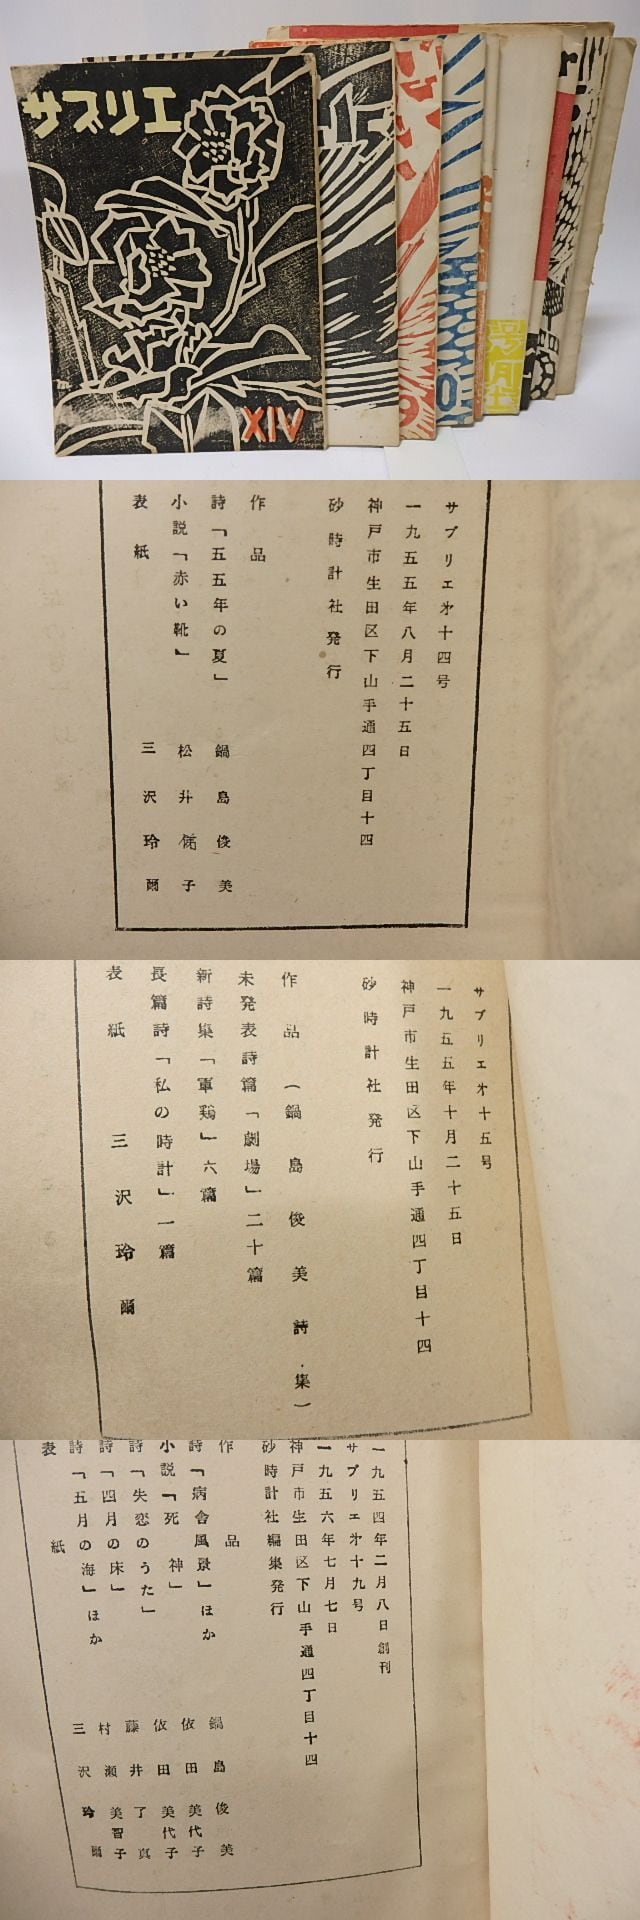 サブリエ
XIV
サブリエ㐧十四号
一九五五年八月二十五日
神戸市生田区下山手通四丁目十四
砂時計社発行
作品
詩「五五年の夏」 鍋島俊美
小説「赤い靴」 松井 子
表紙 三沢玲爾
サブリエ㐧十五号
一九五五年十月二十五日
神戸市生田区下山手通四丁目十四
砂時計社発行
作品(鍋島俊美詩集)
未発表詩篇「劇場」二十篇
新詩集「軍鶏」六篇
長篇詩「私の時計」一篇
表紙 三沢玲爾
一九五四年二月八日創刊
サブリエ㐧十九号
一九五六年七月七日
神戸市生田区下山手通四丁目十四
砂時計社編集発行
作品
詩「病舎風景」ほか 鍋島俊美
小説「死神」 依田美代子
詩「失恋のうた」 依田美代子
詩「四月の床」 藤井了真
詩「五月の海」ほか 村瀬美智子
表紙 三沢玲爾